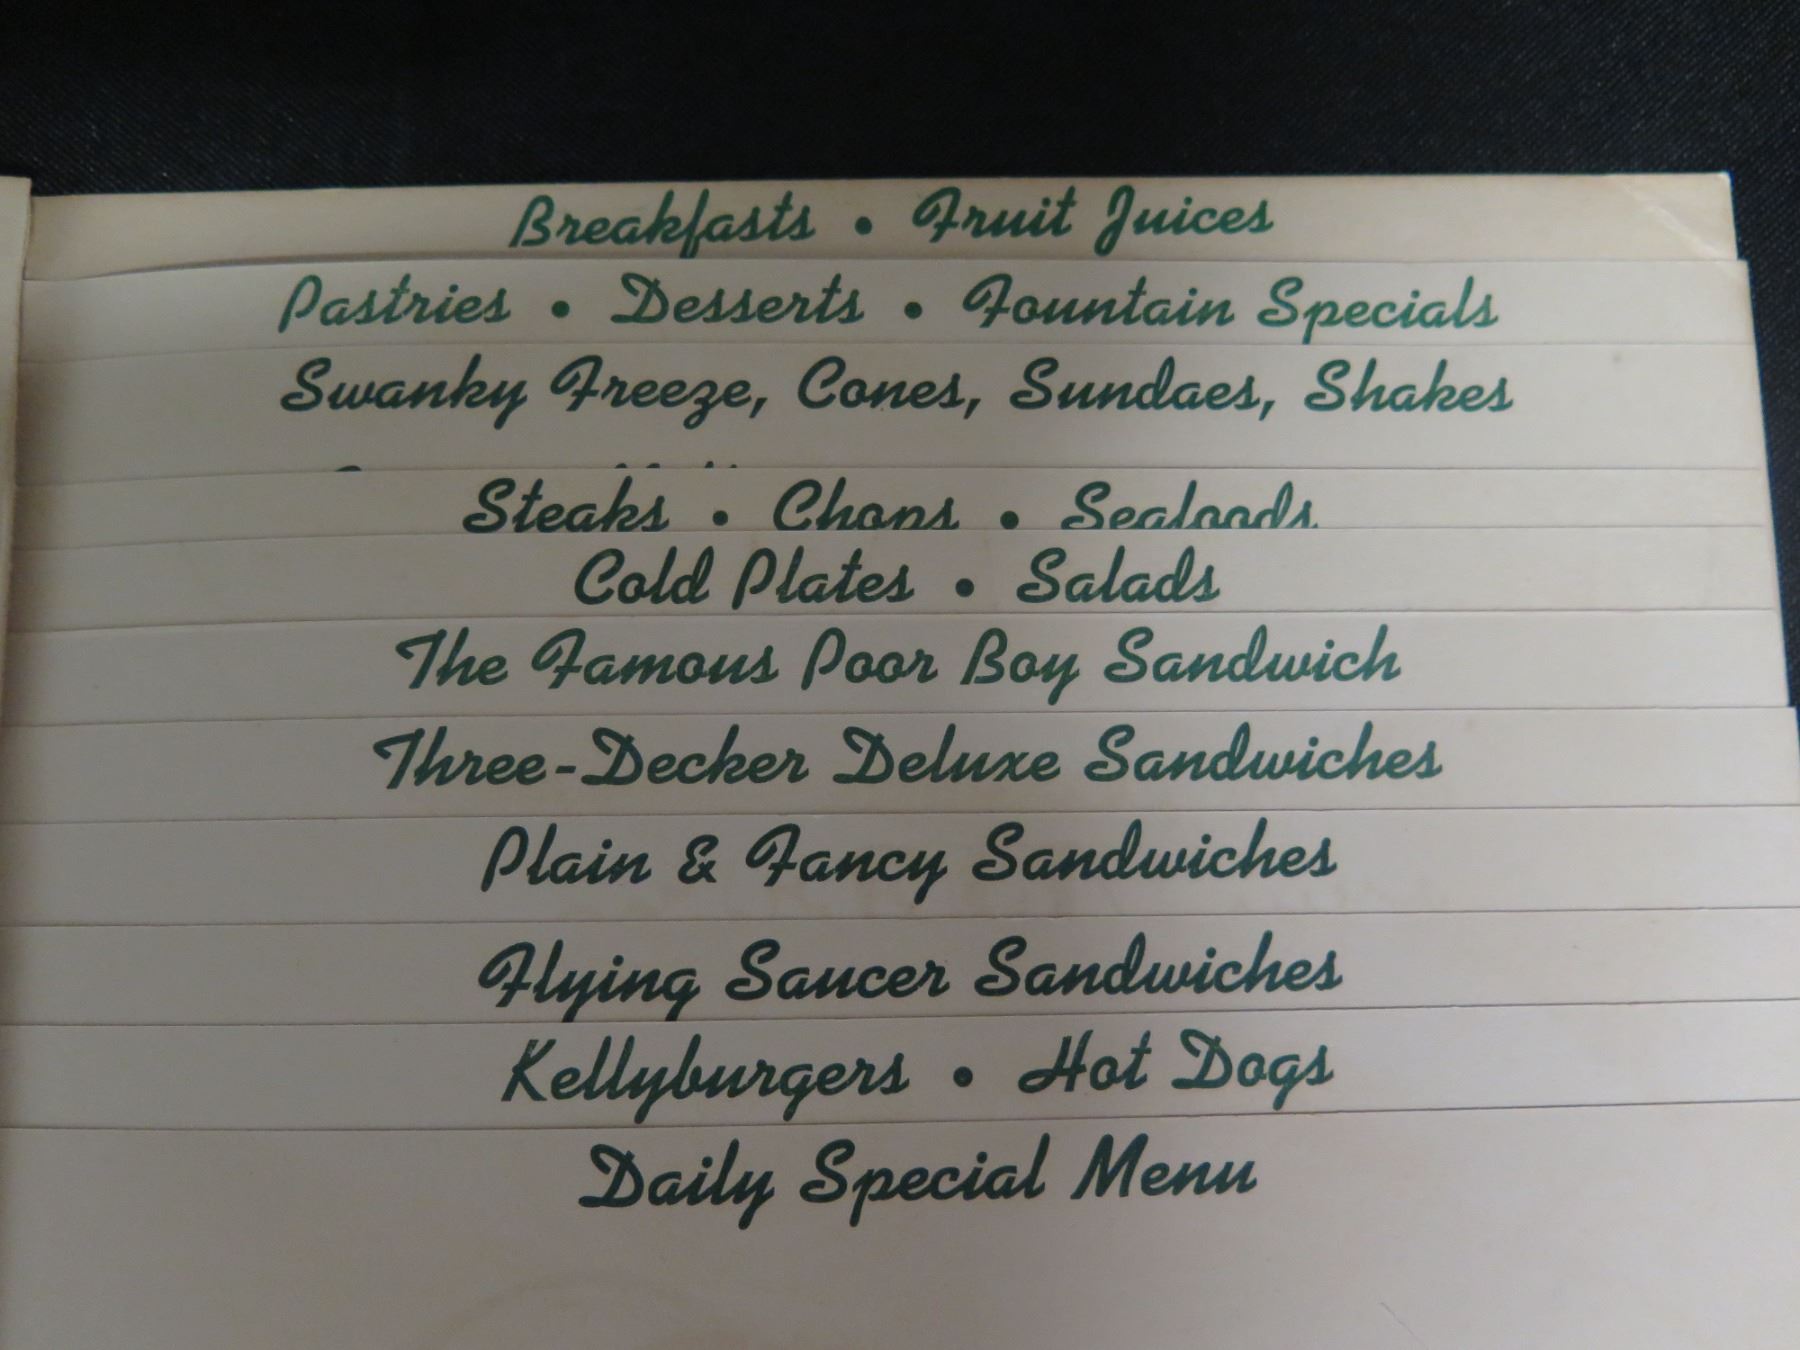 Breakfasts • Fruit Juices
Pastries • Desserts • Fountain Specials
Swanky Freeze, Cones, Sundaes, Shakes
Steaks • Chops • Seafoods
Cold Plates • Salads
The Famous Poor Boy Sandwich
Three-Decker Deluxe Sandwiches
Plain & Fancy Sandwiches
Flying Saucer Sandwiches
Kellyburgers • Hot Dogs
Daily Special Menu